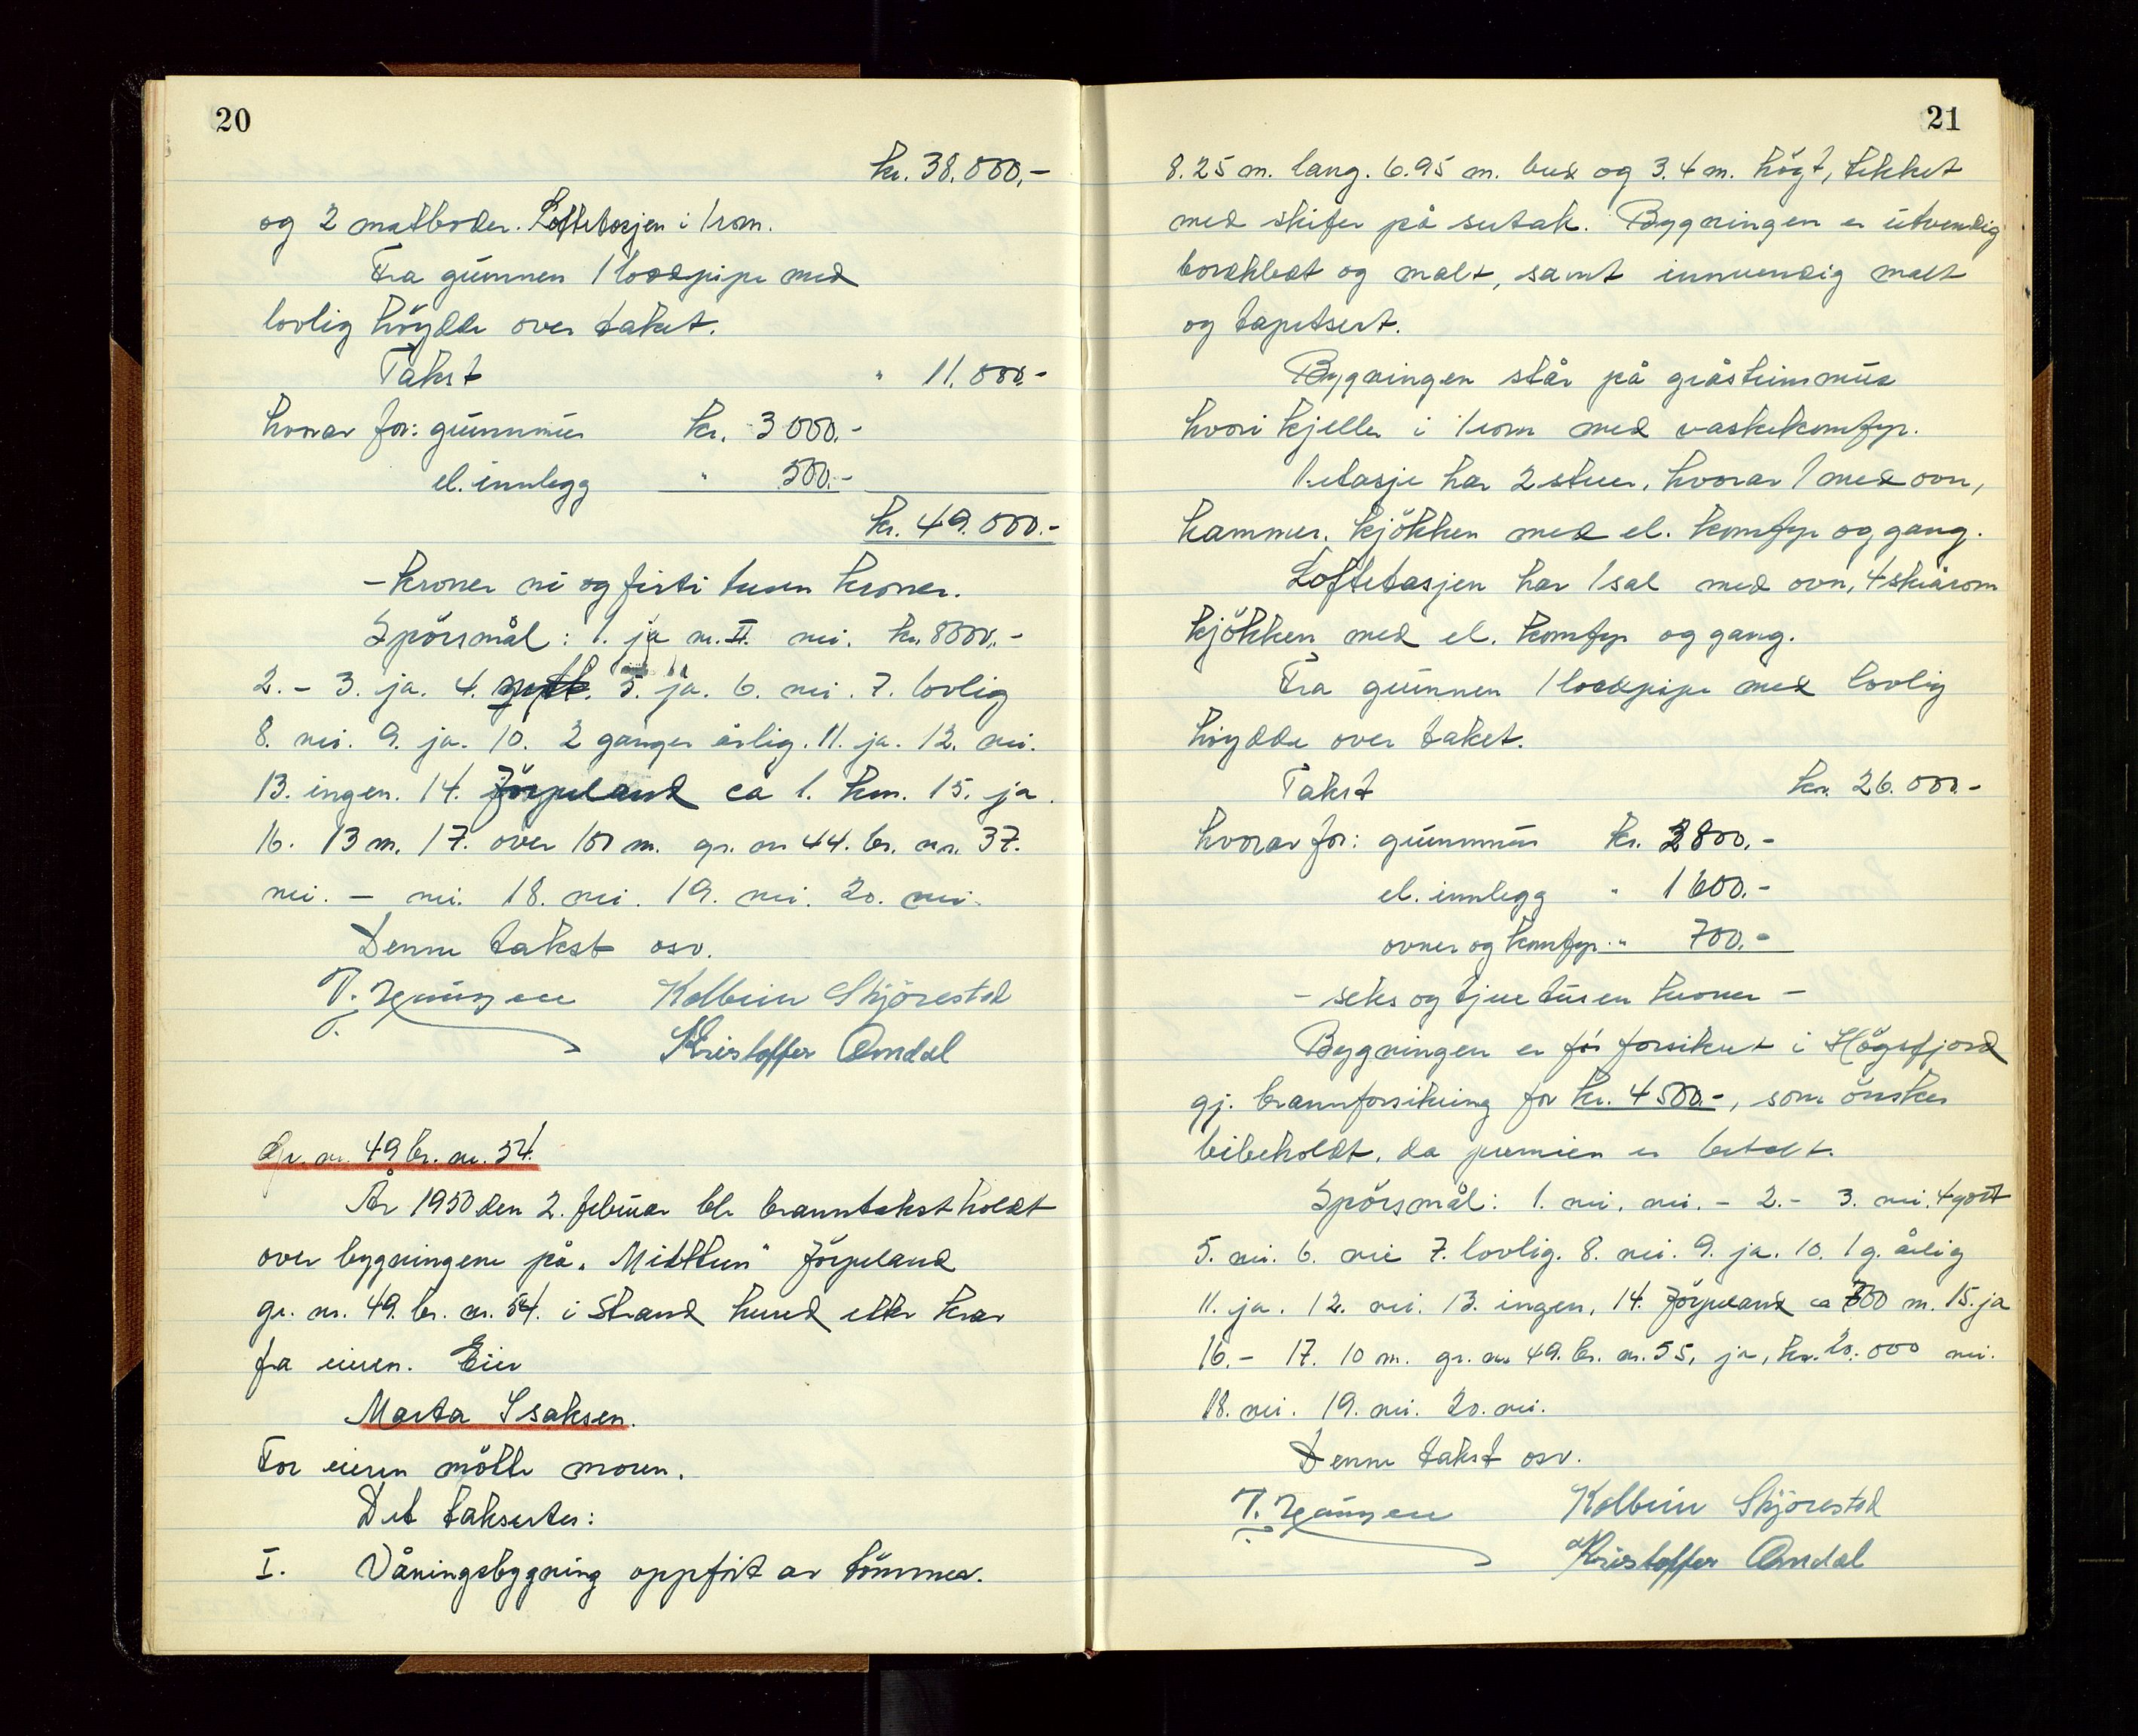 20
kr. 38.000,-
og 2 matboder. Loftetasjen i 1 rom.
Fra grunnen 1 loddpipe med
lovlig höydde over taket.
Takst " 11.000.-
hvorav for: grunnmur kr. 3000.-
el. innlegg " 500.-
kr. 49.000.-
- kroner ni og firti tusen kroner.
Spörsmål: 1. ja nr. II. nei. kr. 8000,-
2. - 3. ja. 4. 5. ja. 6. nei. 7. lovlig
8. nei. 9. ja. 10. 2 ganger årlig. 11. ja. 12. nei.
13. ingen. 14. Jörpeland ca 1. km. 15. ja.
16. 13 m. 17. over 100 m. gr. nr 44. br. nr. 37.
nei. - nei. 18. nei. 19. nei. 20. nei.
Denne takst osv.
Kolbein Skjörestad
Kristoffer Omdal
Gr. nr. 49 br. nr. 54.
År 1950 den 2. februar ble branntakst holdt
over bygningene på "Midttun" Jörpeland
gr. nr. 49. br. nr. 54. i Strand herred etter krav
fra eieren. Eier
Marta Isaksen.
For eieren mötte moren.
Det takseres:
I. Våningsbygning oppfört av tömmer.
21
8.25 m. lang. 6.95 m. bred og 3.4 m. högt, tekket
med skifer på sutak. Bygningen er utvendig
bordkledt og malt, samt innvendig malt
og tapetsert.
Bygningen står på gråsteinsmur
hvori kjeller i 1 rom med vaskekomfyr.
1. etasje har 2 stuer, hvorav 1 med ovn,
kammer. kjökken med el. komfyr og gang.
Loftetasjen har 1 sal med ovn, 4 skrårom
kjökken med el. komfyr og gang.
Fra grunnen 1 loddpipe med lovlig
höydde over taket.
Takst kr. 26.000.-
hvorav for: grunnmur kr. 2800.-
el. innlegg " 1600.-
ovner og komfyr. " 700.-
- seks og tjue tusen kroner -
Bygningen er för forsikret i Högsfjord
gj. brannforsikring for kr. 4500.-, som önskes
beibeholdt, da premien er betalt.
Spörsmål: 1. nei, nei. - 2. - 3. nei. 4 godt
5. nei. 6. nei 7. lovlig. 8. nei. 9. ja. 10. 1 g. årlig
11. ja. 12. nei. 13. ingen, 14. Jörpeland ca 300 m. 15. ja
16. - 17. 10 m. gr. nr. 49. br. nr. 55, ja, kr. 20.000 nei.
18. nei. 19. nei. 20. nei.
Denne takst osv.
Kolbein Skjörestad
Kristoffer Omdal